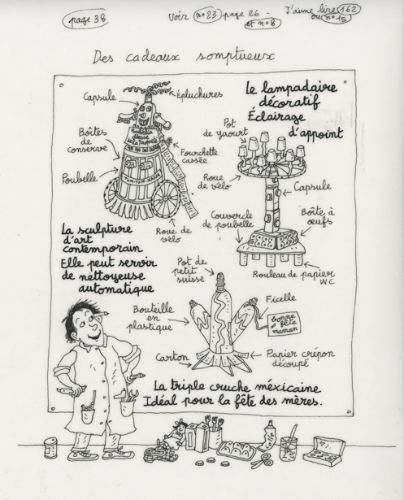 page 38
Voir n°23 page 26 -
et n°8
J'aime lire 162
ou n°15
Des cadeaux somptueux
Capsule
Épluchures
Boîtes
de
conserve
Fourchette
cassée
Poubelle
Roue de
vélo
La sculpture
d'art
contemporain
Elle peut servir
de nettoyeuse
automatique
Le lampadaire
décoratif
Éclairage
d'appoint
Pot
de yaourt
Roue de
vélo
Capsule
Couvercle
de poubelle
Boîte à
œufs
Rouleau de papier
WC
Pot de
petit
suisse
Bouteille
en
plastique
Ficelle
bonne
fête
maman
Carton
Papier crépon
découpé
La triple cruche méxicaine
Idéal pour la fête des mères.